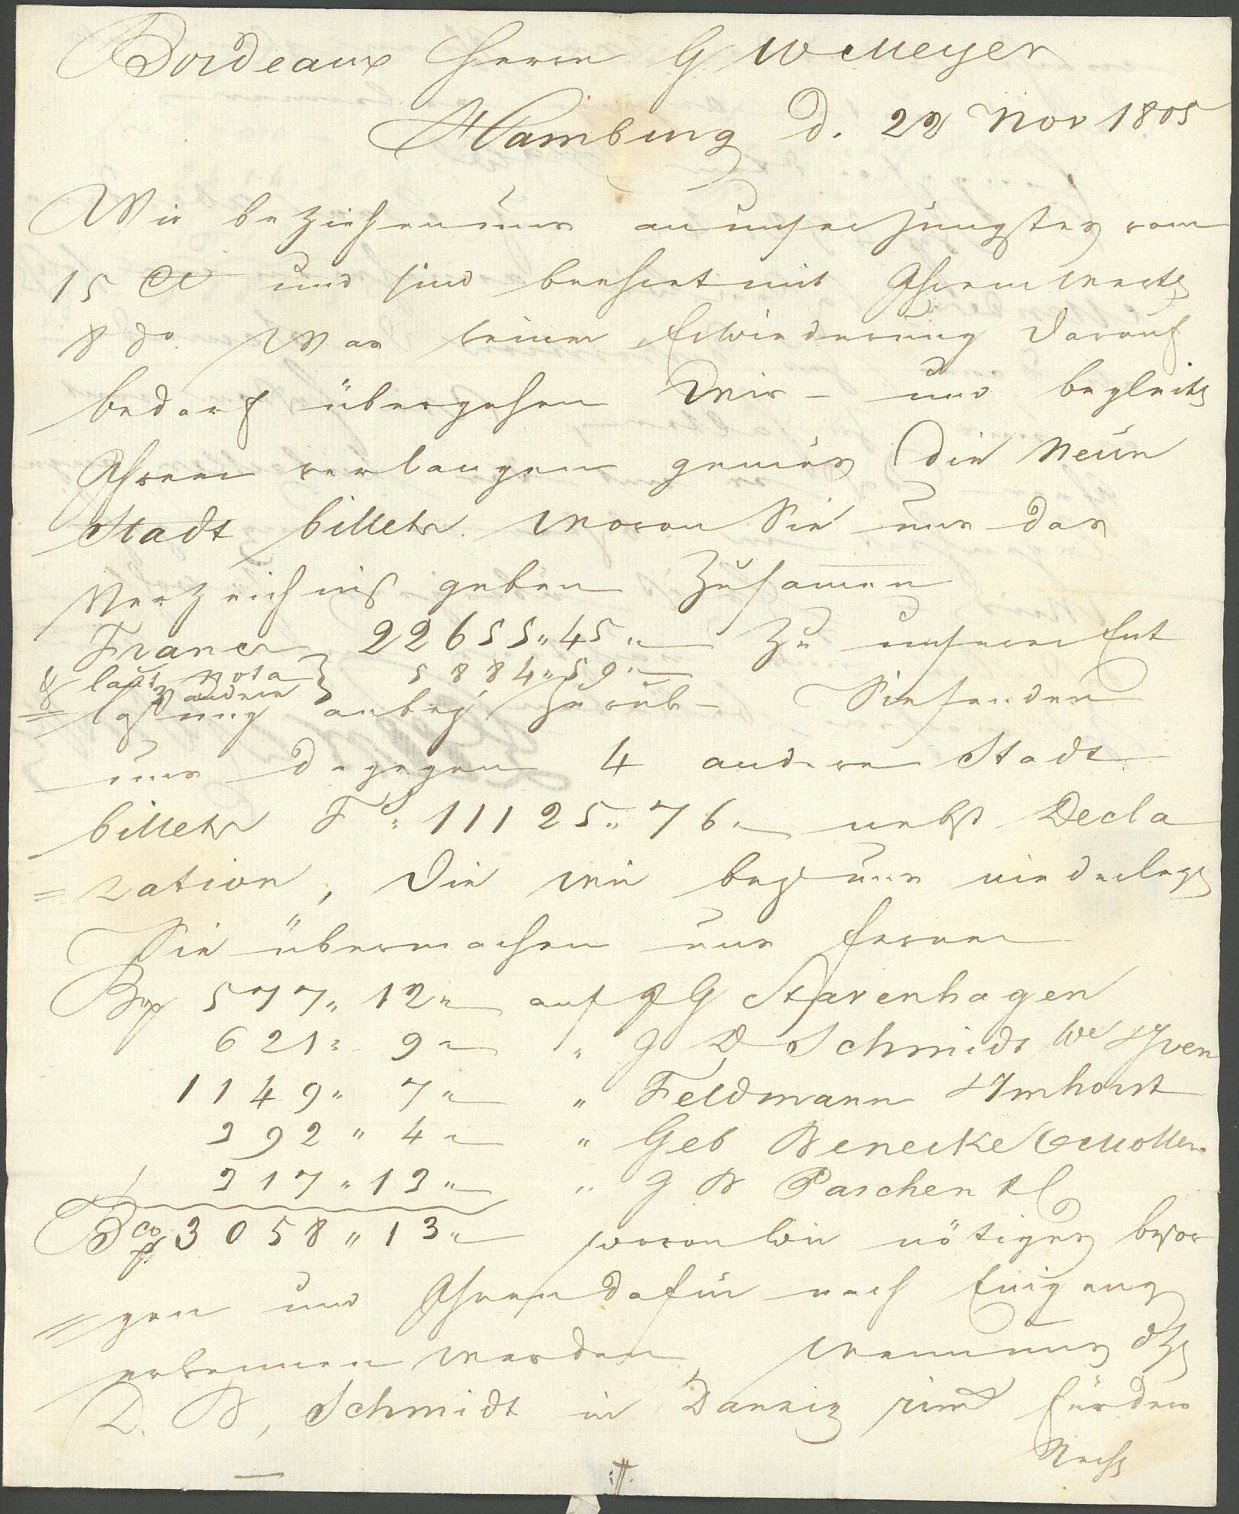 Bordeaux Herrn G W Meyer
Hamburg d. 22 Nov 1805
Wir beziehen uns an unser Jüngstes vom
15 und sind beehret mit Ihrem werth
8 do. Was keiner Erwiederung darauf
bedarf übergehen Wir - und begleiten
Ihrem verlangen gemäs die Neün
Stadt billets wovon Sie uns das
Verzeichniß geben Zusamen
Francs 22655 " 45 " Zu unserer Ent
laut Nota 5884 " 59 "
andere
= lastung anbey zurük - Sie senden
uns dagegen 4 andere Stadt
billets Fs: 11125 " 76 " nebst Decla
= ration, die wir bey uns niederlegen
Sie übermachen uns ferner
577 " 12 " auf J G Stavenhagen
621 " 9 " " J D Schmidt We
1149 " 7 " " Feldmann & Imhorst
392 " 4 " " Geb Benecke & Moller
317 " 13 " " J B Paschen
Bco 3058 " 13 " wovon wir nötiges besor
= gen und Ihnen dafür nach Eingang
erkennen werden, wenn uns
D. B, Schmidt in Danzig für den